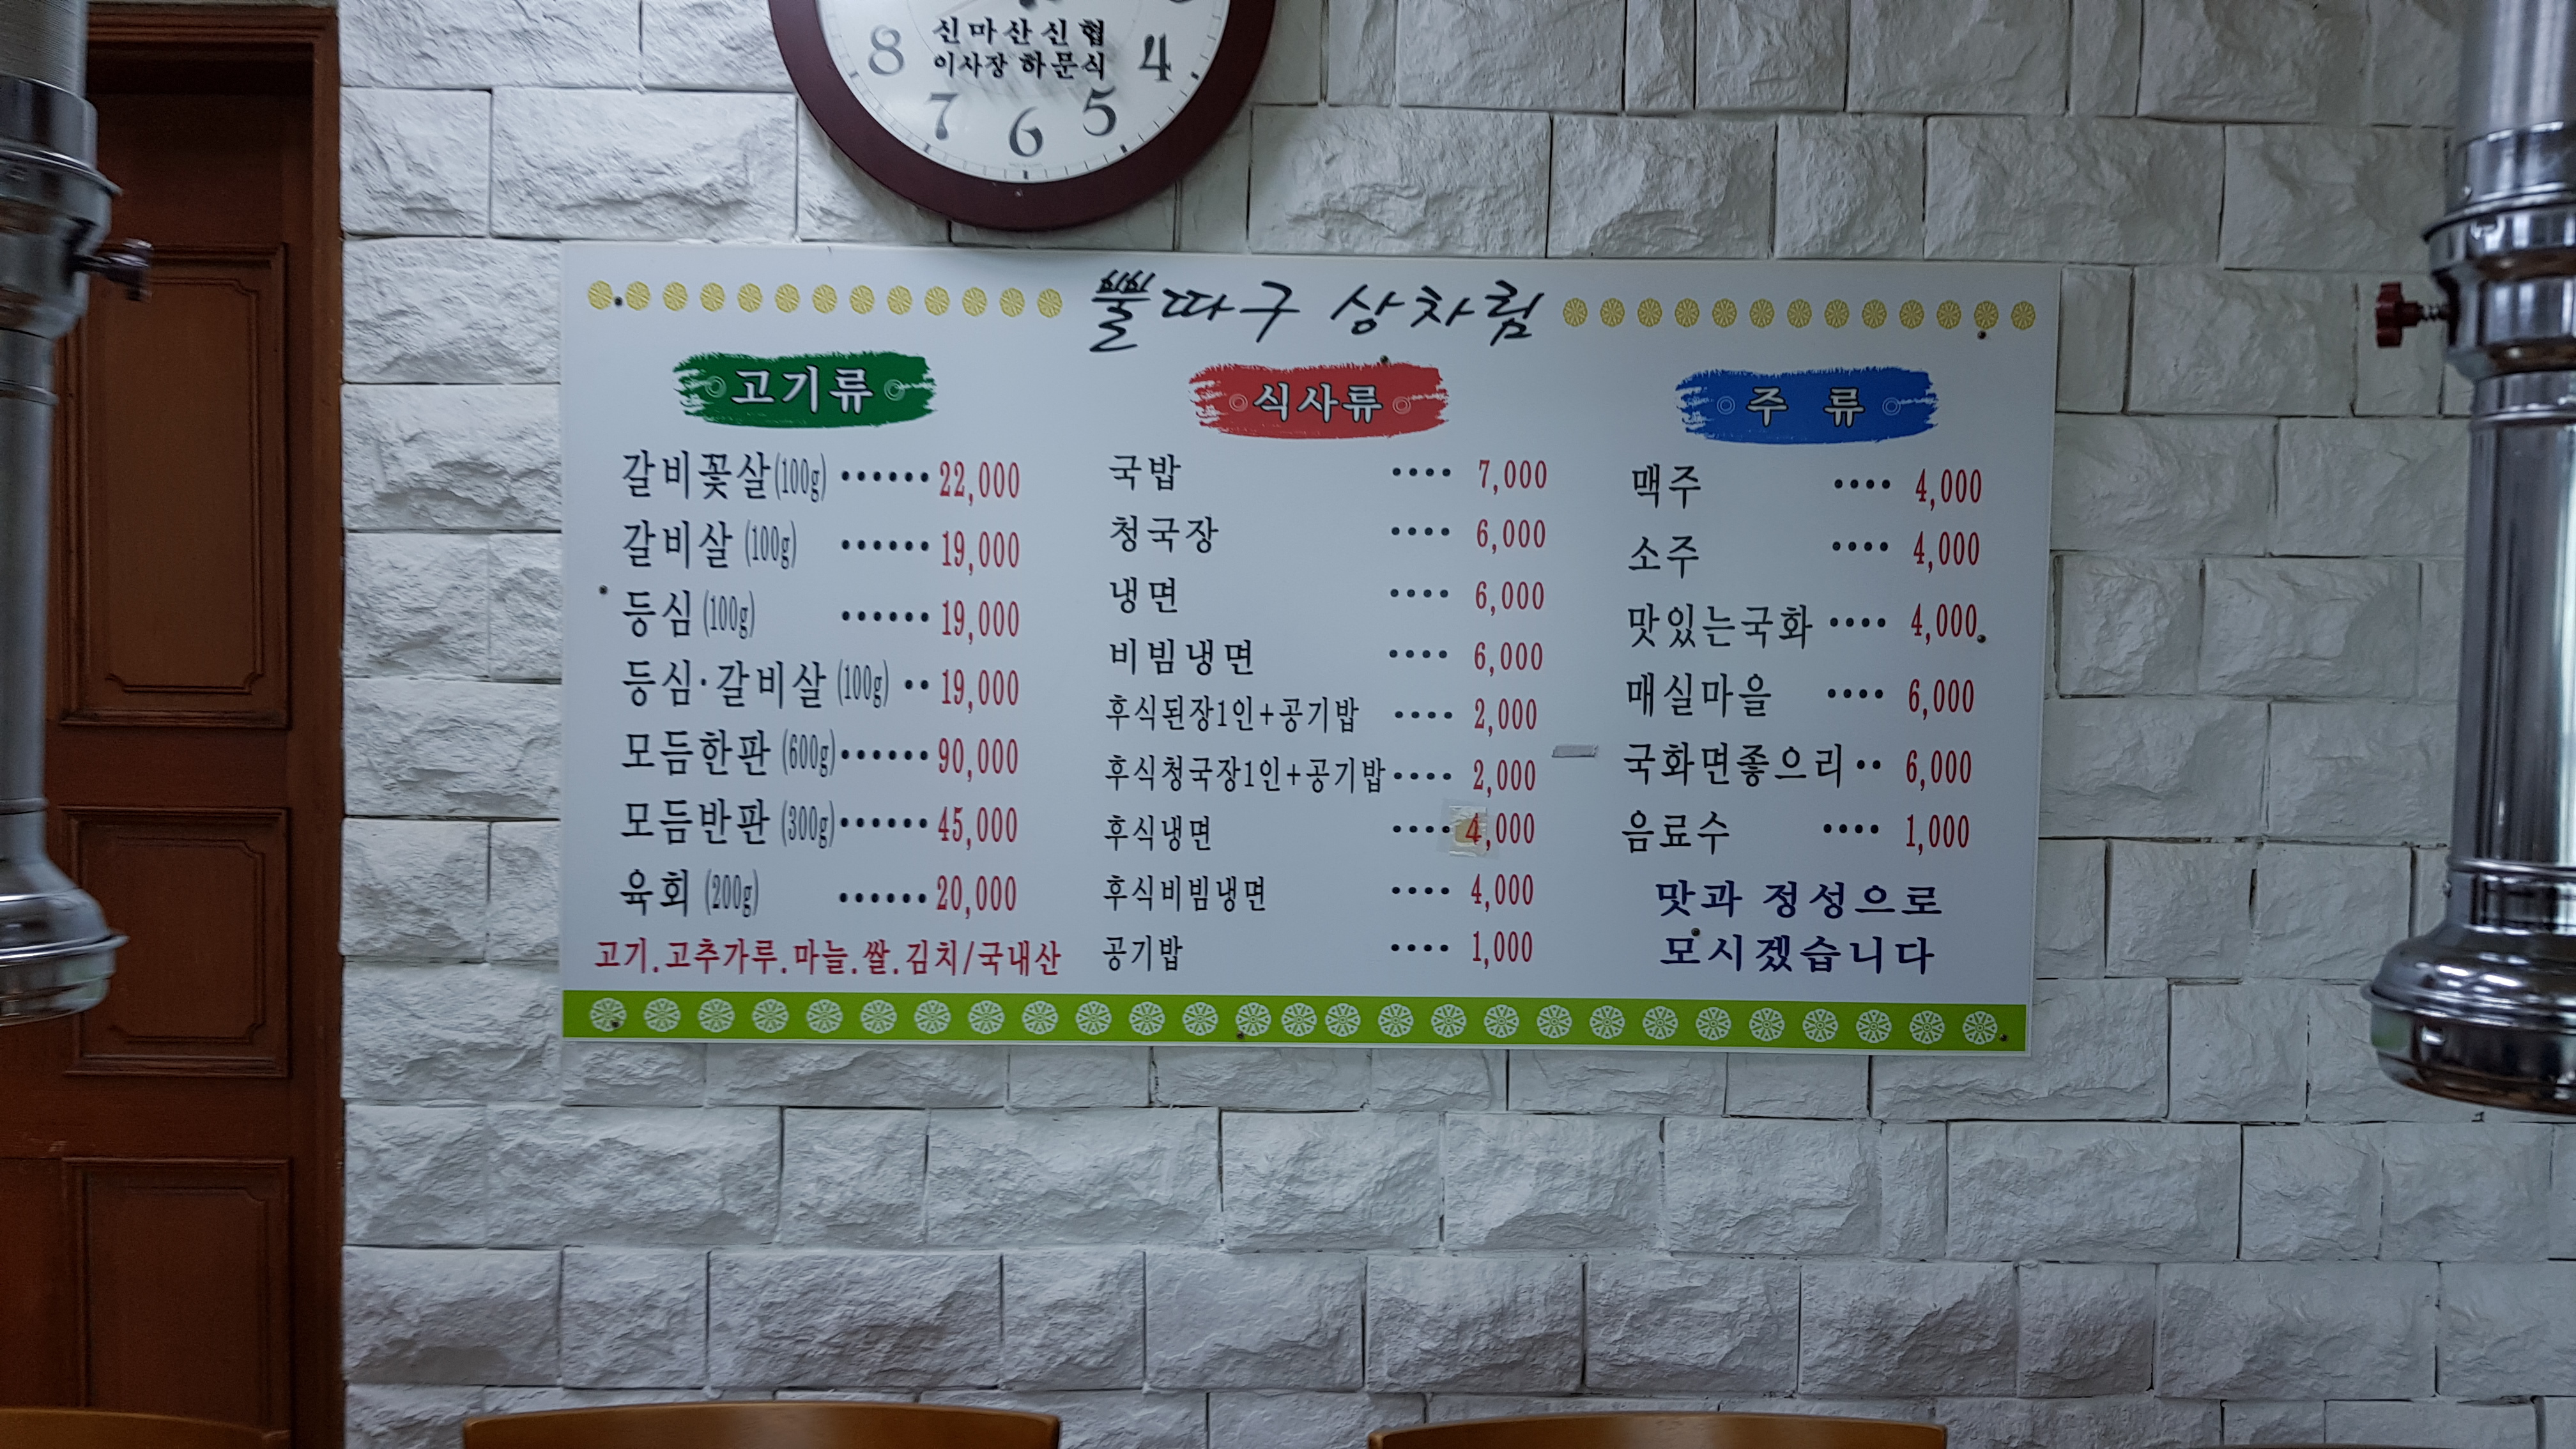 신마산신협
8 이사장 하문식 4
7 6 5
뿔따구 상차림
고기류
갈비꽃살(100g) ······ 22,000
갈비살 (100g) ······ 19,000
등심 (100g) ······ 19,000
등심·갈비살 (100g) ·· 19,000
모듬한판 (600g) ······ 90,000
모듬반판 (300g) ······ 45,000
육회 (200g) ······ 20,000
고기.고추가루.마늘.쌀.김치/국내산
식사류
국밥 ···· 7,000
청국장 ···· 6,000
냉면 ···· 6,000
비빔냉면 ···· 6,000
후식된장1인+공기밥 ···· 2,000
후식청국장1인+공기밥 ···· 2,000
후식냉면 ···· 4,000
후식비빔냉면 ···· 4,000
공기밥 ···· 1,000
주 류
맥주 ···· 4,000
소주 ···· 4,000
맛있는국화 ···· 4,000
매실마을 ···· 6,000
국화면좋으리 ·· 6,000
음료수 ···· 1,000
맛과 정성으로
모시겠습니다